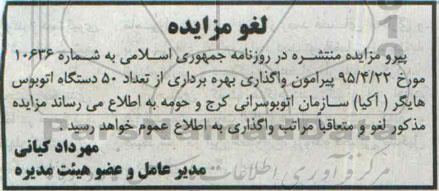 لغو مزایده
پیرو مزایده منتشره در روزنامه جمهوری اسلامی به شماره ۱۰۶۳۶
مورخ ۹۵/۴/۲۲ پیرامون واگذاری بهره برداری از تعداد ۵۰ دستگاه اتوبوس
هایگر (آکیا) سازمان اتوبوسرانی کرج و حومه به اطلاع می رساند مزایده
مذکور لغو و متعاقباً مراتب واگذاری به اطلاع عموم خواهد رسید.
مهرداد کیانی
مدیر عامل و عضو هیئت مدیره